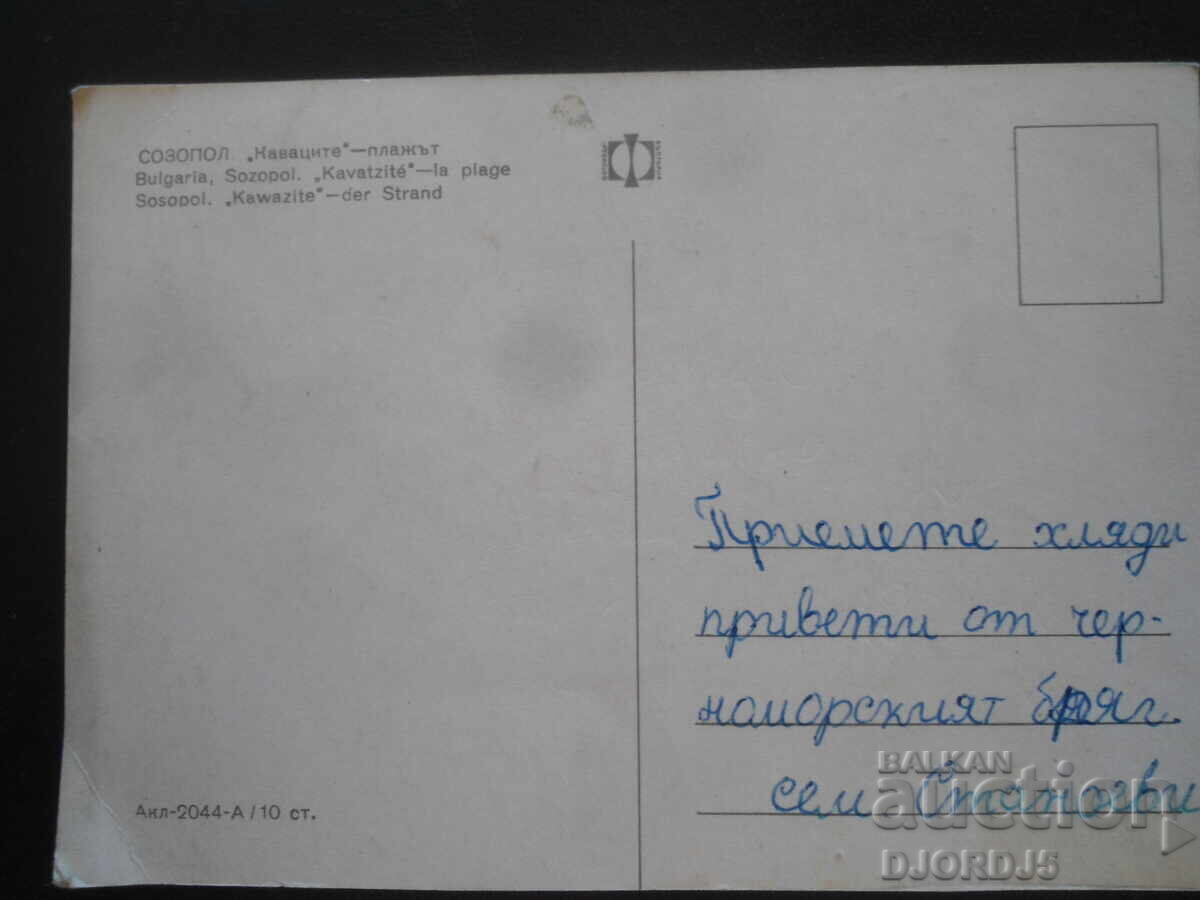 СОЗОПОЛ. „Каваците"—плажът
Bulgaria, Sozopol. „Kavatzité"—la plage
Sosopol. „Kawazite"—der Strand
Приемете хляди
привети от чер-
номорският бряг.
сем Станчеви
Акл-2044-А/10 ст.
BALKAN
auction
DJORDJ5